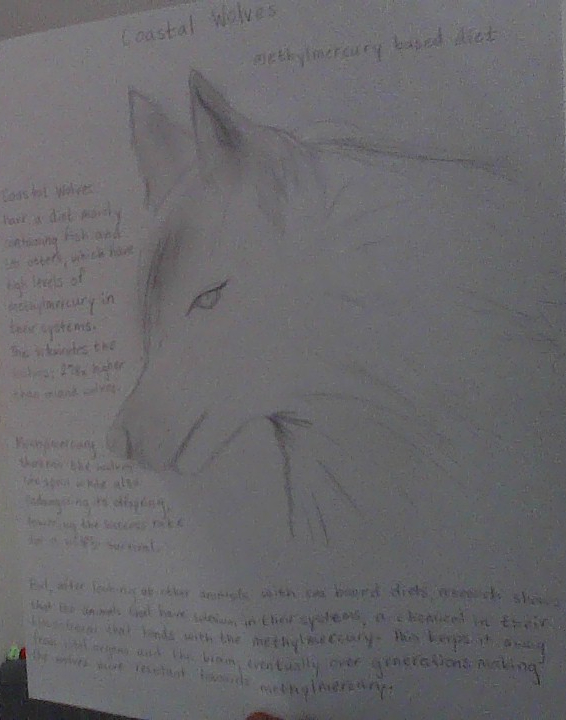 Coastal Wolves
methylmercury based diet
Coastal Wolves
have a diet mainly
containing fish and
sea otters, which have
high levels of
methylmercury in
their systems.
The the
wolves, 278x higher
than inland wolves.
Methylmercury
shortens the wolves
life span while also
endangering its offspring,
lowering the success rate
for a wolf's survival.
But, after looking at other animals with sea based diets research shows
that the animals that have selenium in their systems, a chemical in their
that bonds with the methylmercury. This keeps it away
from vital organs and the brain, eventually over generations making
the wolves more resistant towards methylmercury.